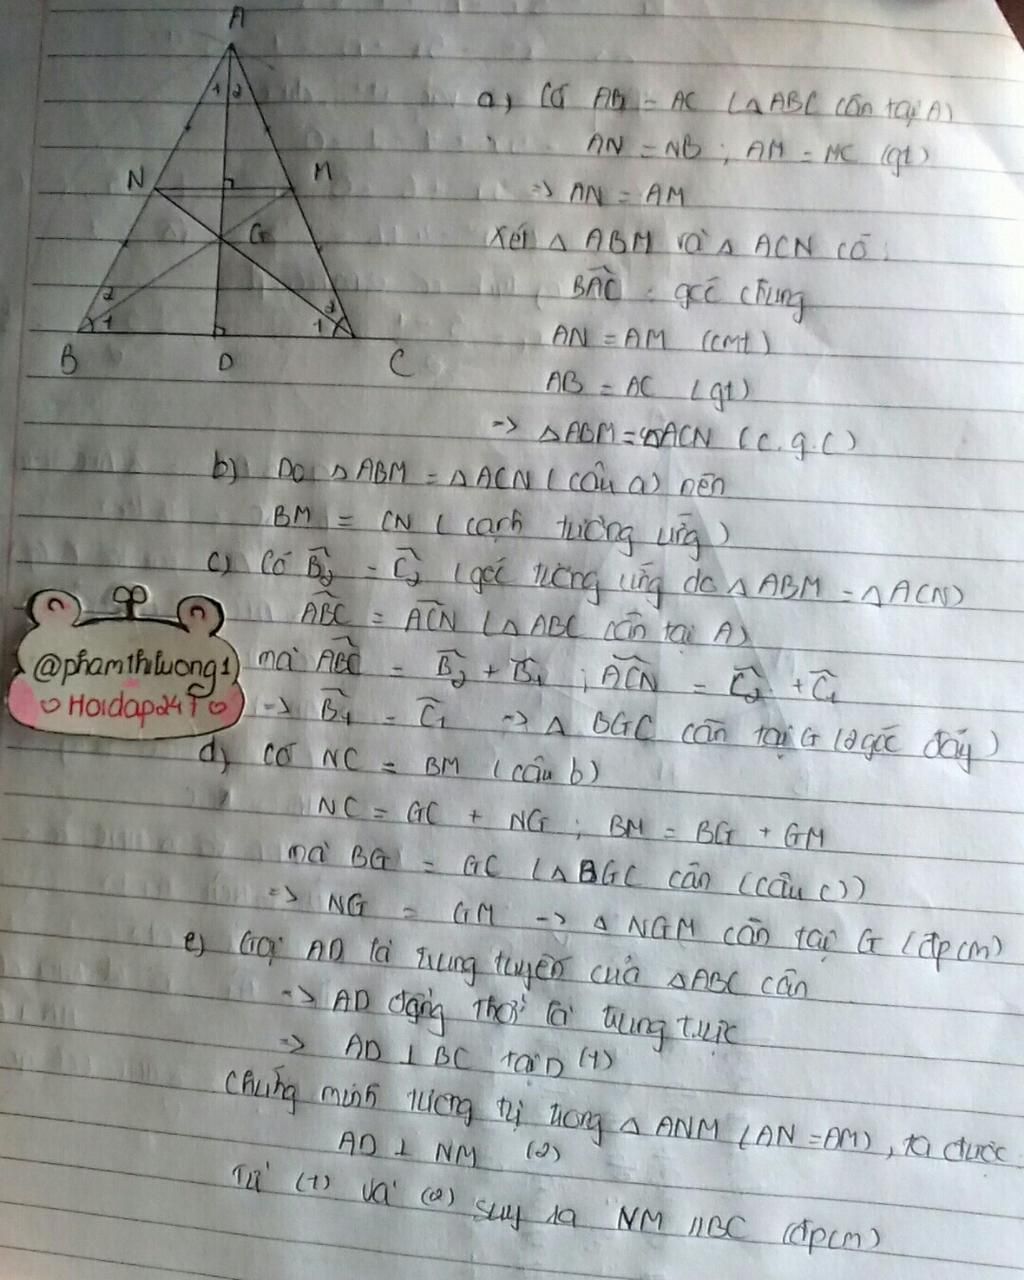 A
1 2
N M
G
2 1
1 2
B D C
a) Có AB = AC (△ABC cân tại A)
AN = NB ; AM = MC (gt)
=> AN = AM
Xét △ ABM và △ ACN có :
BAC : góc chung
AN = AM (cmt)
AB = AC (gt)
=> △ABM = △ACN (c.g.c)
b) Do △ABM = △ACN (câu a) nên
BM = CN (cạnh tương ứng)
c) Có B̂₂ = Ĉ₂ (góc tương ứng do △ABM = △ACN)
ABC = ACN (△ABC cân tại A)
mà ABC = B̂₂ + B̂₁ ; ACN = Ĉ₂ + Ĉ₁
=> B̂₁ = Ĉ₁ => △ BGC cân tại G (2 góc đáy)
@phamthiluong1
Hoidap247
d) Có NC = BM (câu b)
NC = GC + NG ; BM = BG + GM
mà BG = GC (△BGC cân (câu c))
=> NG = GM => △ NGM cân tại G (đpcm)
e) Gọi AD là trung tuyến của △ABC cân
=> AD đồng thời là trung trực
=> AD ⊥ BC tại D (1)
Chứng minh tương tự trong △ ANM (AN = AM), ta được
AD ⊥ NM (2)
Từ (1) và (2) suy ra NM // BC (đpcm)